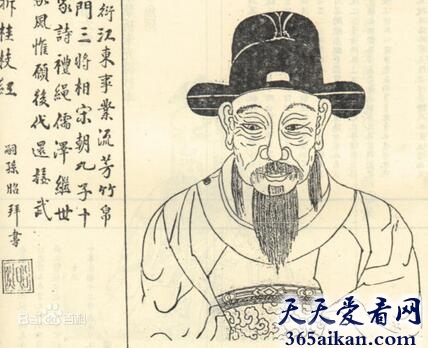 衍江東事業流芳竹帛
門三將相宋朝九子十
家詩禮繩儒澤繼世
風惟願後代還接武
折桂枝紅
嗣孫昭拜書
Bai百科
天天爱看网
365aikan.com